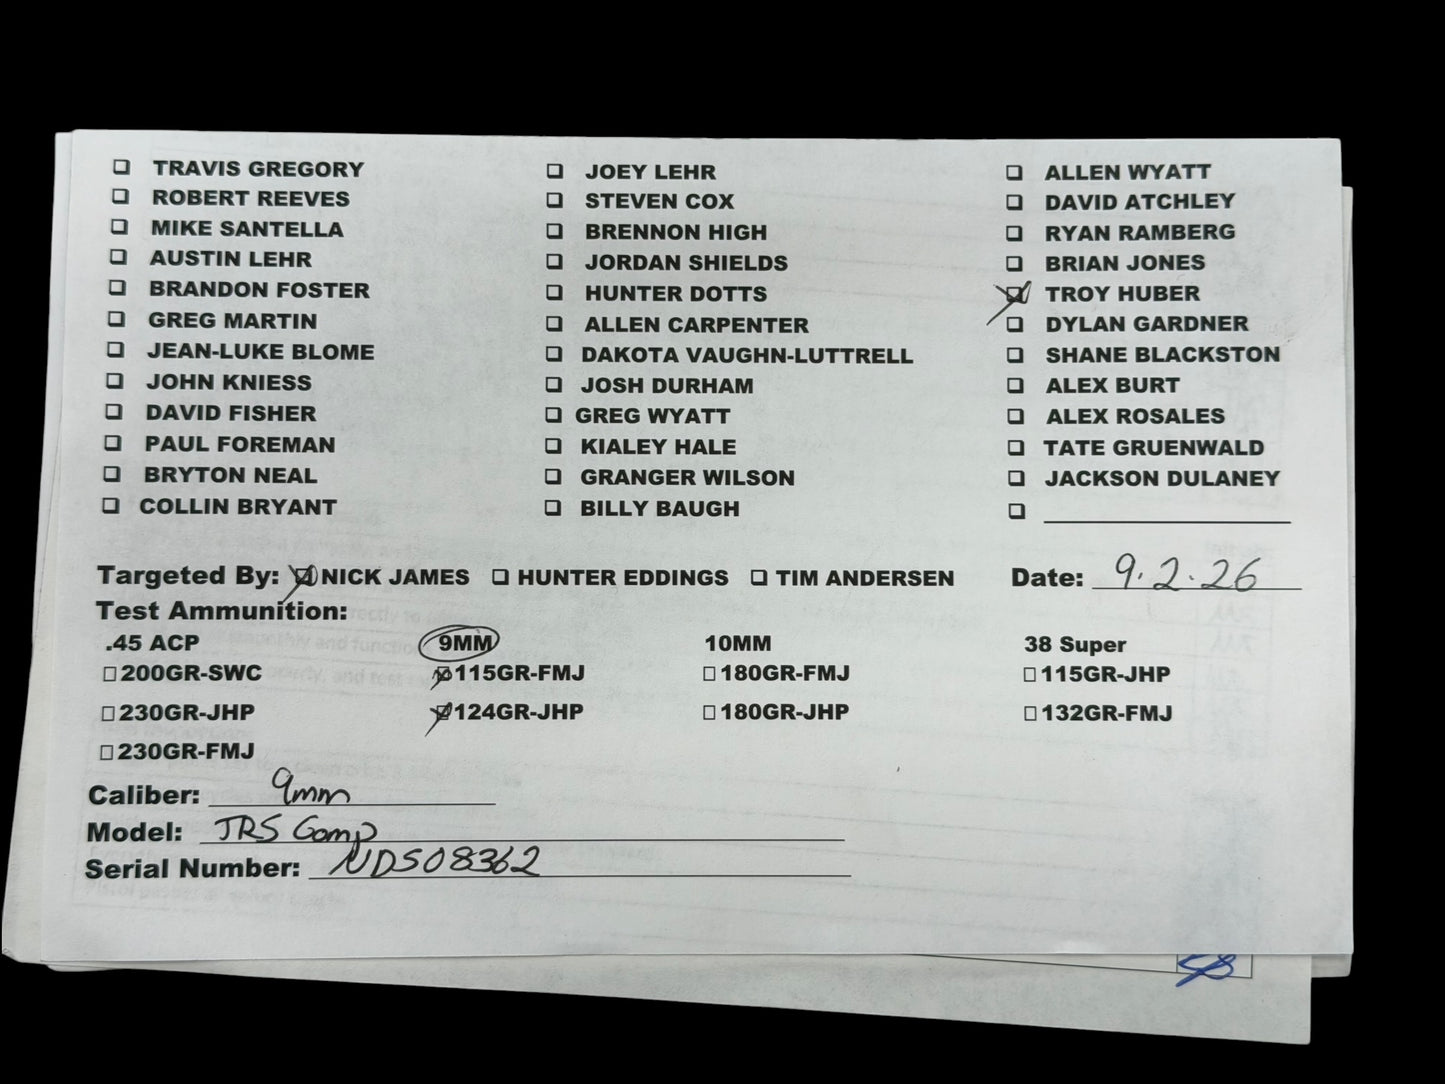 ☐ TRAVIS GREGORY ☐ JOEY LEHR ☐ ALLEN WYATT
☐ ROBERT REEVES ☐ STEVEN COX ☐ DAVID ATCHLEY
☐ MIKE SANTELLA ☐ BRENNON HIGH ☐ RYAN RAMBERG
☐ AUSTIN LEHR ☐ JORDAN SHIELDS ☐ BRIAN JONES
☐ BRANDON FOSTER ☐ HUNTER DOTTS ☒ TROY HUBER
☐ GREG MARTIN ☐ ALLEN CARPENTER ☐ DYLAN GARDNER
☐ JEAN-LUKE BLOME ☐ DAKOTA VAUGHN-LUTTRELL ☐ SHANE BLACKSTON
☐ JOHN KNIESS ☐ JOSH DURHAM ☐ ALEX BURT
☐ DAVID FISHER ☐ GREG WYATT ☐ ALEX ROSALES
☐ PAUL FOREMAN ☐ KIALEY HALE ☐ TATE GRUENWALD
☐ BRYTON NEAL ☐ GRANGER WILSON ☐ JACKSON DULANEY
☐ COLLIN BRYANT ☐ BILLY BAUGH ☐
Targeted By: ☒ NICK JAMES ☐ HUNTER EDDINGS ☐ TIM ANDERSEN Date: 9.2.26
Test Ammunition:
.45 ACP 9MM 10MM 38 Super
☐ 200GR-SWC ☒ 115GR-FMJ ☐ 180GR-FMJ ☐ 115GR-JHP
☐ 230GR-JHP ☒ 124GR-JHP ☐ 180GR-JHP ☐ 132GR-FMJ
☐ 230GR-FMJ
Caliber: 9mm
Model: TRS Comp
Serial Number: NDS08362